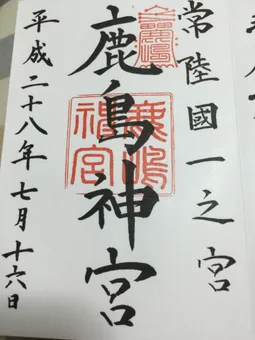 常陸國一之宮
鹿島神宮
鹿嶋
神宮
平成二十八年七月十六日